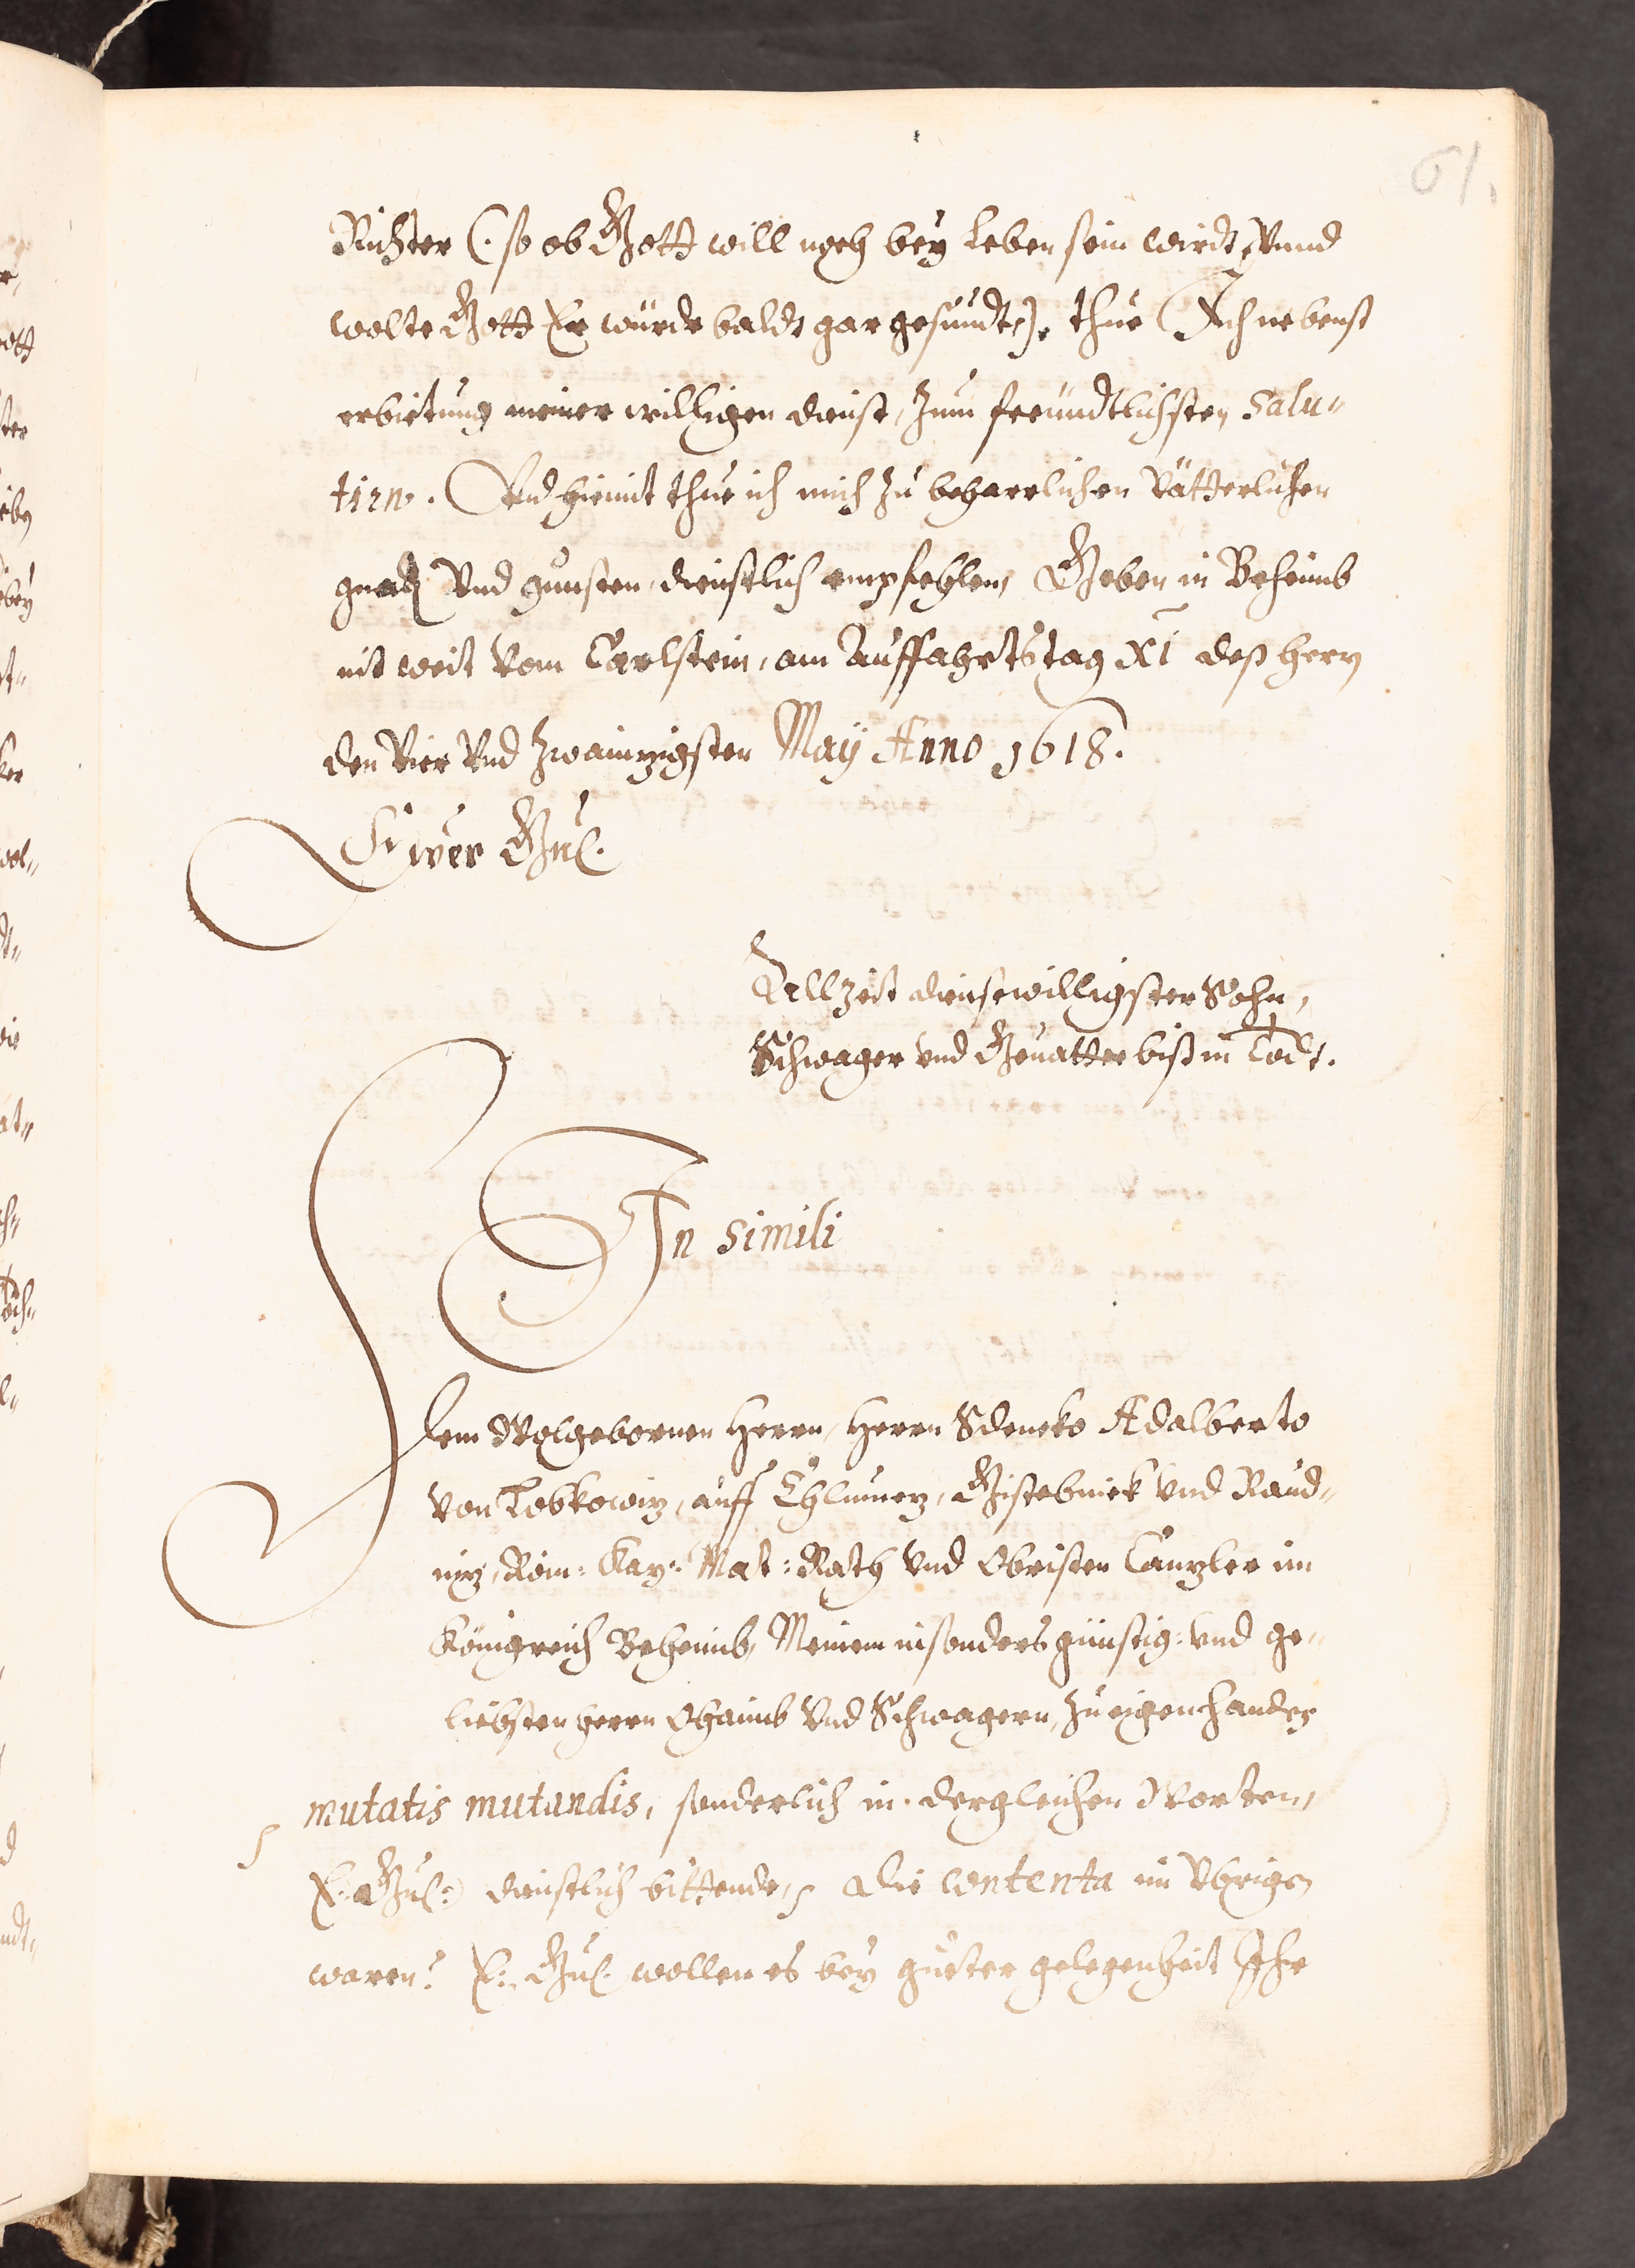 61.
Richter (: so ob Gott will noch bey leben sein wirdt, Vnnd
wolte Gott Er würde baldt gar gesundt :), thue Ich nebenst
erbietung meiner willigen dienst, zum freündtlichsten Salu-
tirn. Vnd hiemit thue ich mich zu beharrlichen Vätterlichen
gnadt Vnd gunsten, dienstlich empfehlen, Geben in Beheimb
nit weit Vom Carlstein, am Auffahrtstag XI deß herrn
den Vier Vnd zwaintzigsten May Anno 1618.
Ewer Gnl.
Allzeit dienstwilligster Sohn,
Schwager vnd Geuatter biß in Todt.
In simili
Dem Wolgebornen Herrn, Herrn Sdencko Adalberto
Von Lobkowiz, auff Chlumez, Gistebnick Vnd Raud-
niz, Röm: Kay: Mat: Rath Vnd Obristen Canzler im
Königreich Beheimb, Meinem insonders günstig: vnd ge-
liebsten herrn Ohaimb Vnd Schwagern, zu eigen handen
mutatis mutandis, sonderlich in dergleichen Worten,
E: Gnl: dienstlich bittende, die contenta im Vbrigen
waren: E: Gnl. wollen es bey gueter gelegenheit Ihr